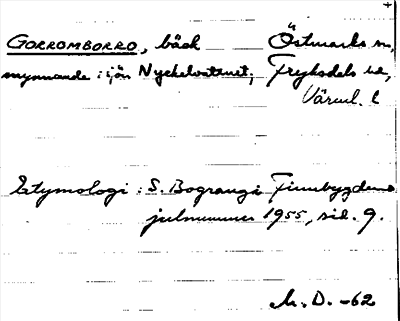 GORROMBORRO, bäck Östmarks sn,
mynnande i sjön Nyckelvattnet, Fryksdals hd,
Värml. l
Etymologi: S. Bograngi Finnbygdens
julnummer 1955, sid. 9.
M. D. -62